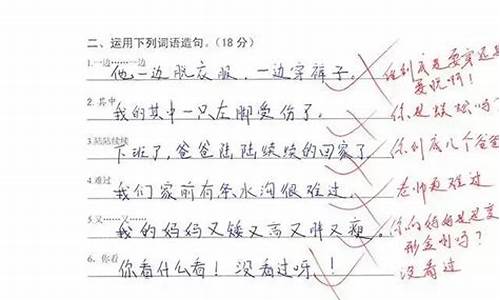 二、运用下列词语造句。(18分)
1.一边……一边
他一边脱衣服，一边穿裤子。
他到底是要穿还是要脱啊！
2. 其中
我的其中一只左脚受伤了。
你是蜈蚣吗？
3.陆陆续续
下班了，爸爸陆陆续续的回家了。
你到底几个爸爸
4.难过
我们家前有条水沟很难过。
老师更难过
5.又……又……
我的妈妈又矮又高又胖又瘦。
你的妈妈是变形金刚吗？
6. 你看
你看什么看！没看过呀！！
没看过